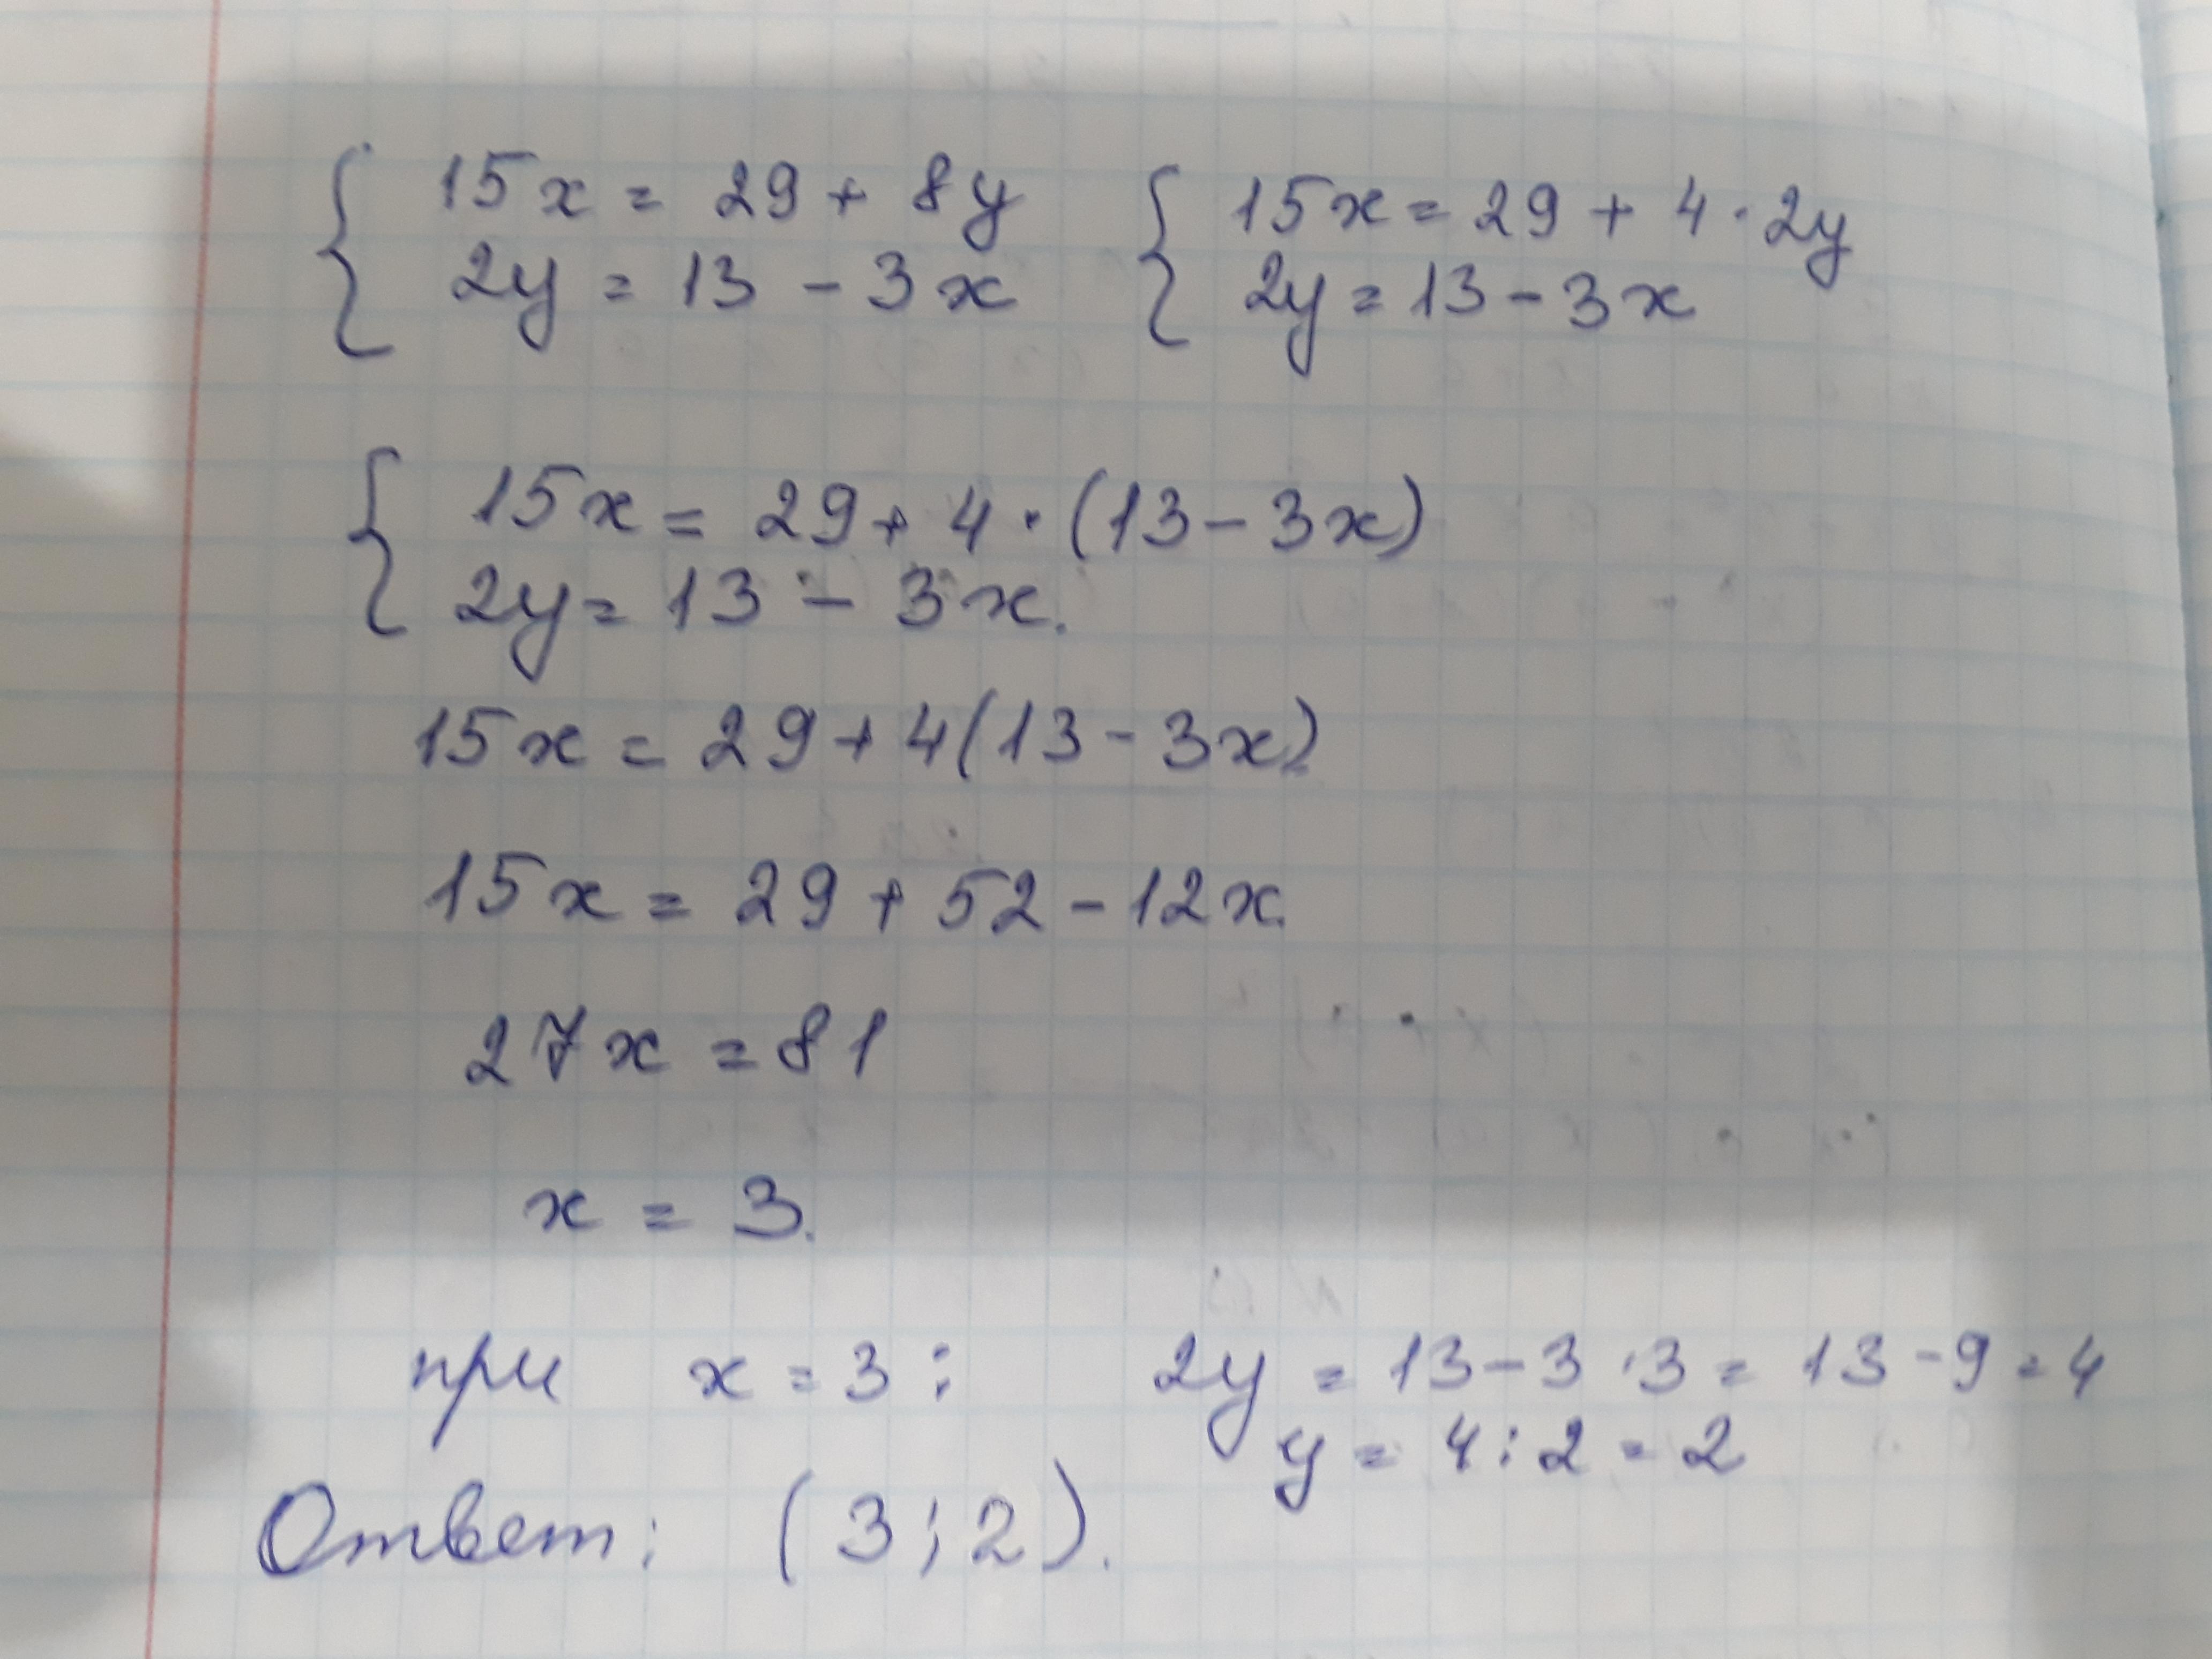 15x = 29 + 8y 15x = 29 + 4 · 2y
2y = 13 - 3x 2y = 13 - 3x
15x = 29 + 4 · (13 - 3x)
2y = 13 - 3x.
15x = 29 + 4(13 - 3x)
15x = 29 + 52 - 12x.
27x = 81
x = 3.
при x = 3: 2y = 13 - 3 · 3 = 13 - 9 = 4
y = 4 : 2 = 2
Ответ: (3; 2).